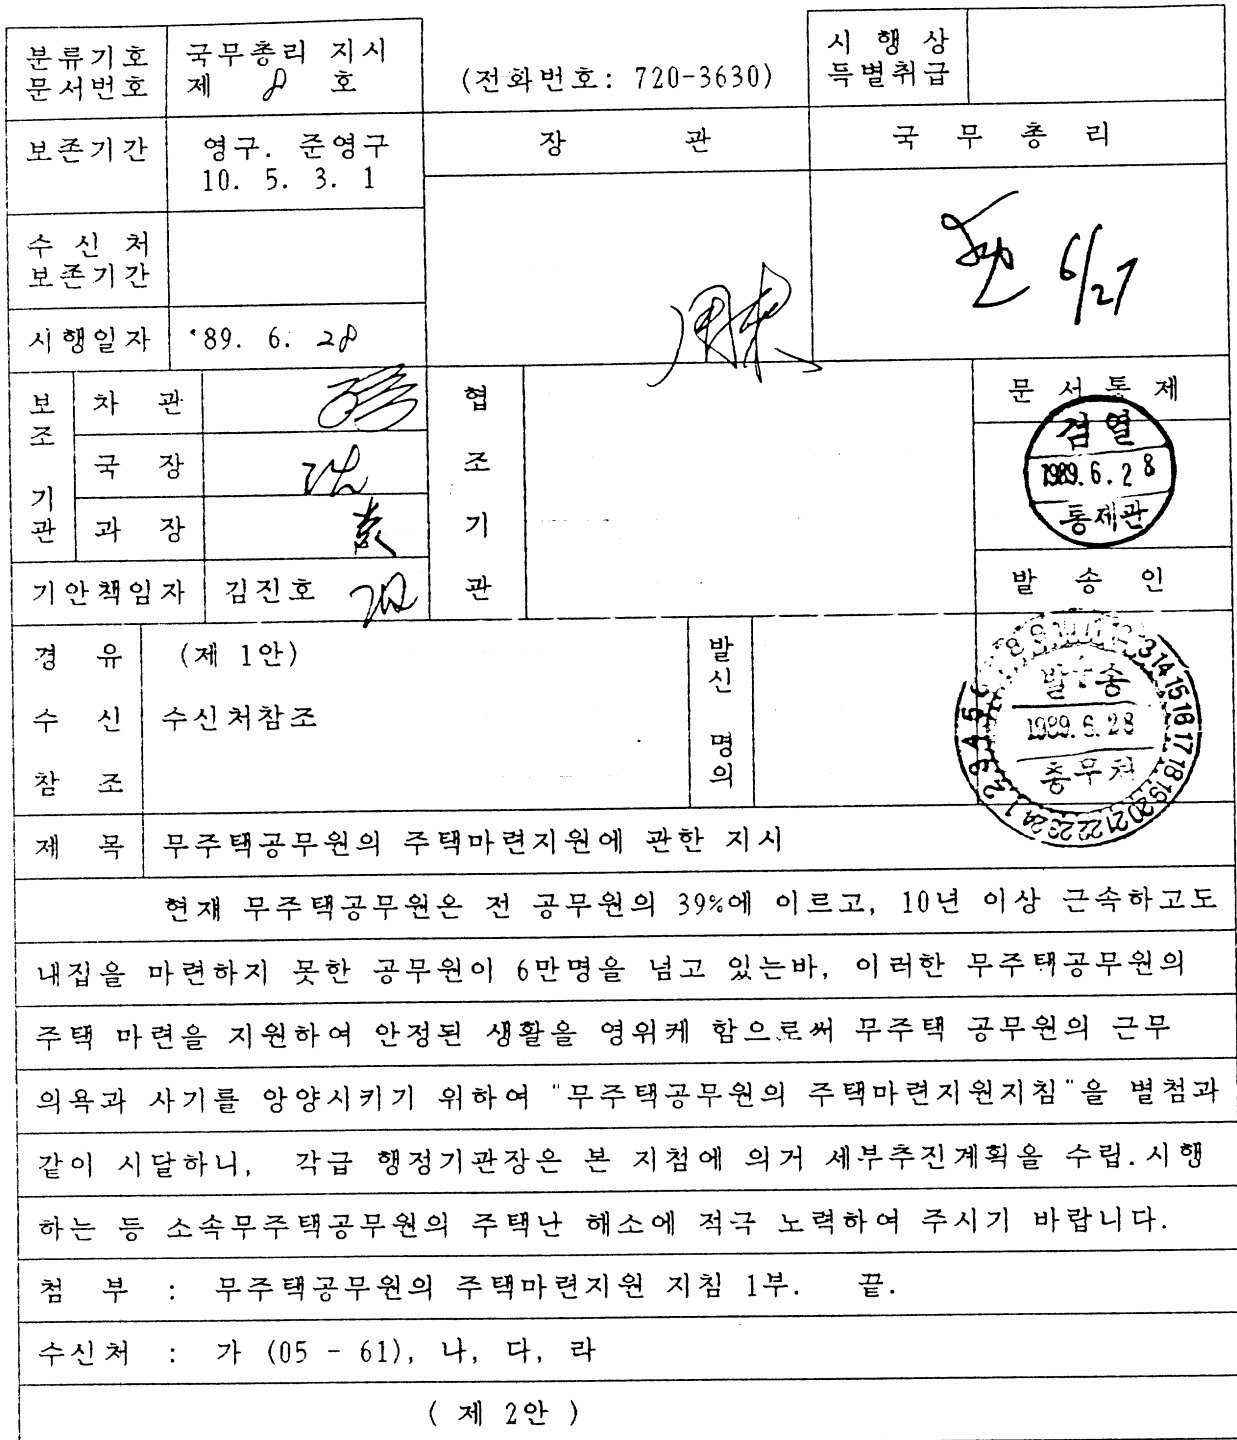 분류기호
문서번호
국무총리 지시
제 8 호
(전화번호: 720-3630)
시 행 상
특별취급
보존기간
영구. 준영구
10. 5. 3. 1
장 관
국 무 총 리
수 신 처
보존기간
6/27
시행일자
'89. 6. 28
보조기관
차 관
국 장
과 장
협조기관
문 서 통 제
검열
1989. 6. 28
통제관
기안책임자
김진호
발 송 인
경 유
(제 1안)
수 신
수신처참조
참 조
발신 명의
발송
1989. 6. 28
총무처
1 2 3 4 5 6 8 9 10 11 12 13 14 15 16 17 18 19 20 21 22 23 24
제 목
무주택공무원의 주택마련지원에 관한 지시
현재 무주택공무원은 전 공무원의 39%에 이르고, 10년 이상 근속하고도
내집을 마련하지 못한 공무원이 6만명을 넘고 있는바, 이러한 무주택공무원의
주택 마련을 지원하여 안정된 생활을 영위케 함으로써 무주택 공무원의 근무
의욕과 사기를 앙양시키기 위하여 "무주택공무원의 주택마련지원지침"을 별첨과
같이 시달하니, 각급 행정기관장은 본 지침에 의거 세부추진계획을 수립.시행
하는 등 소속무주택공무원의 주택난 해소에 적극 노력하여 주시기 바랍니다.
첨 부 : 무주택공무원의 주택마련지원 지침 1부. 끝.
수신처 : 가 (05 - 61), 나, 다, 라
( 제 2안 )